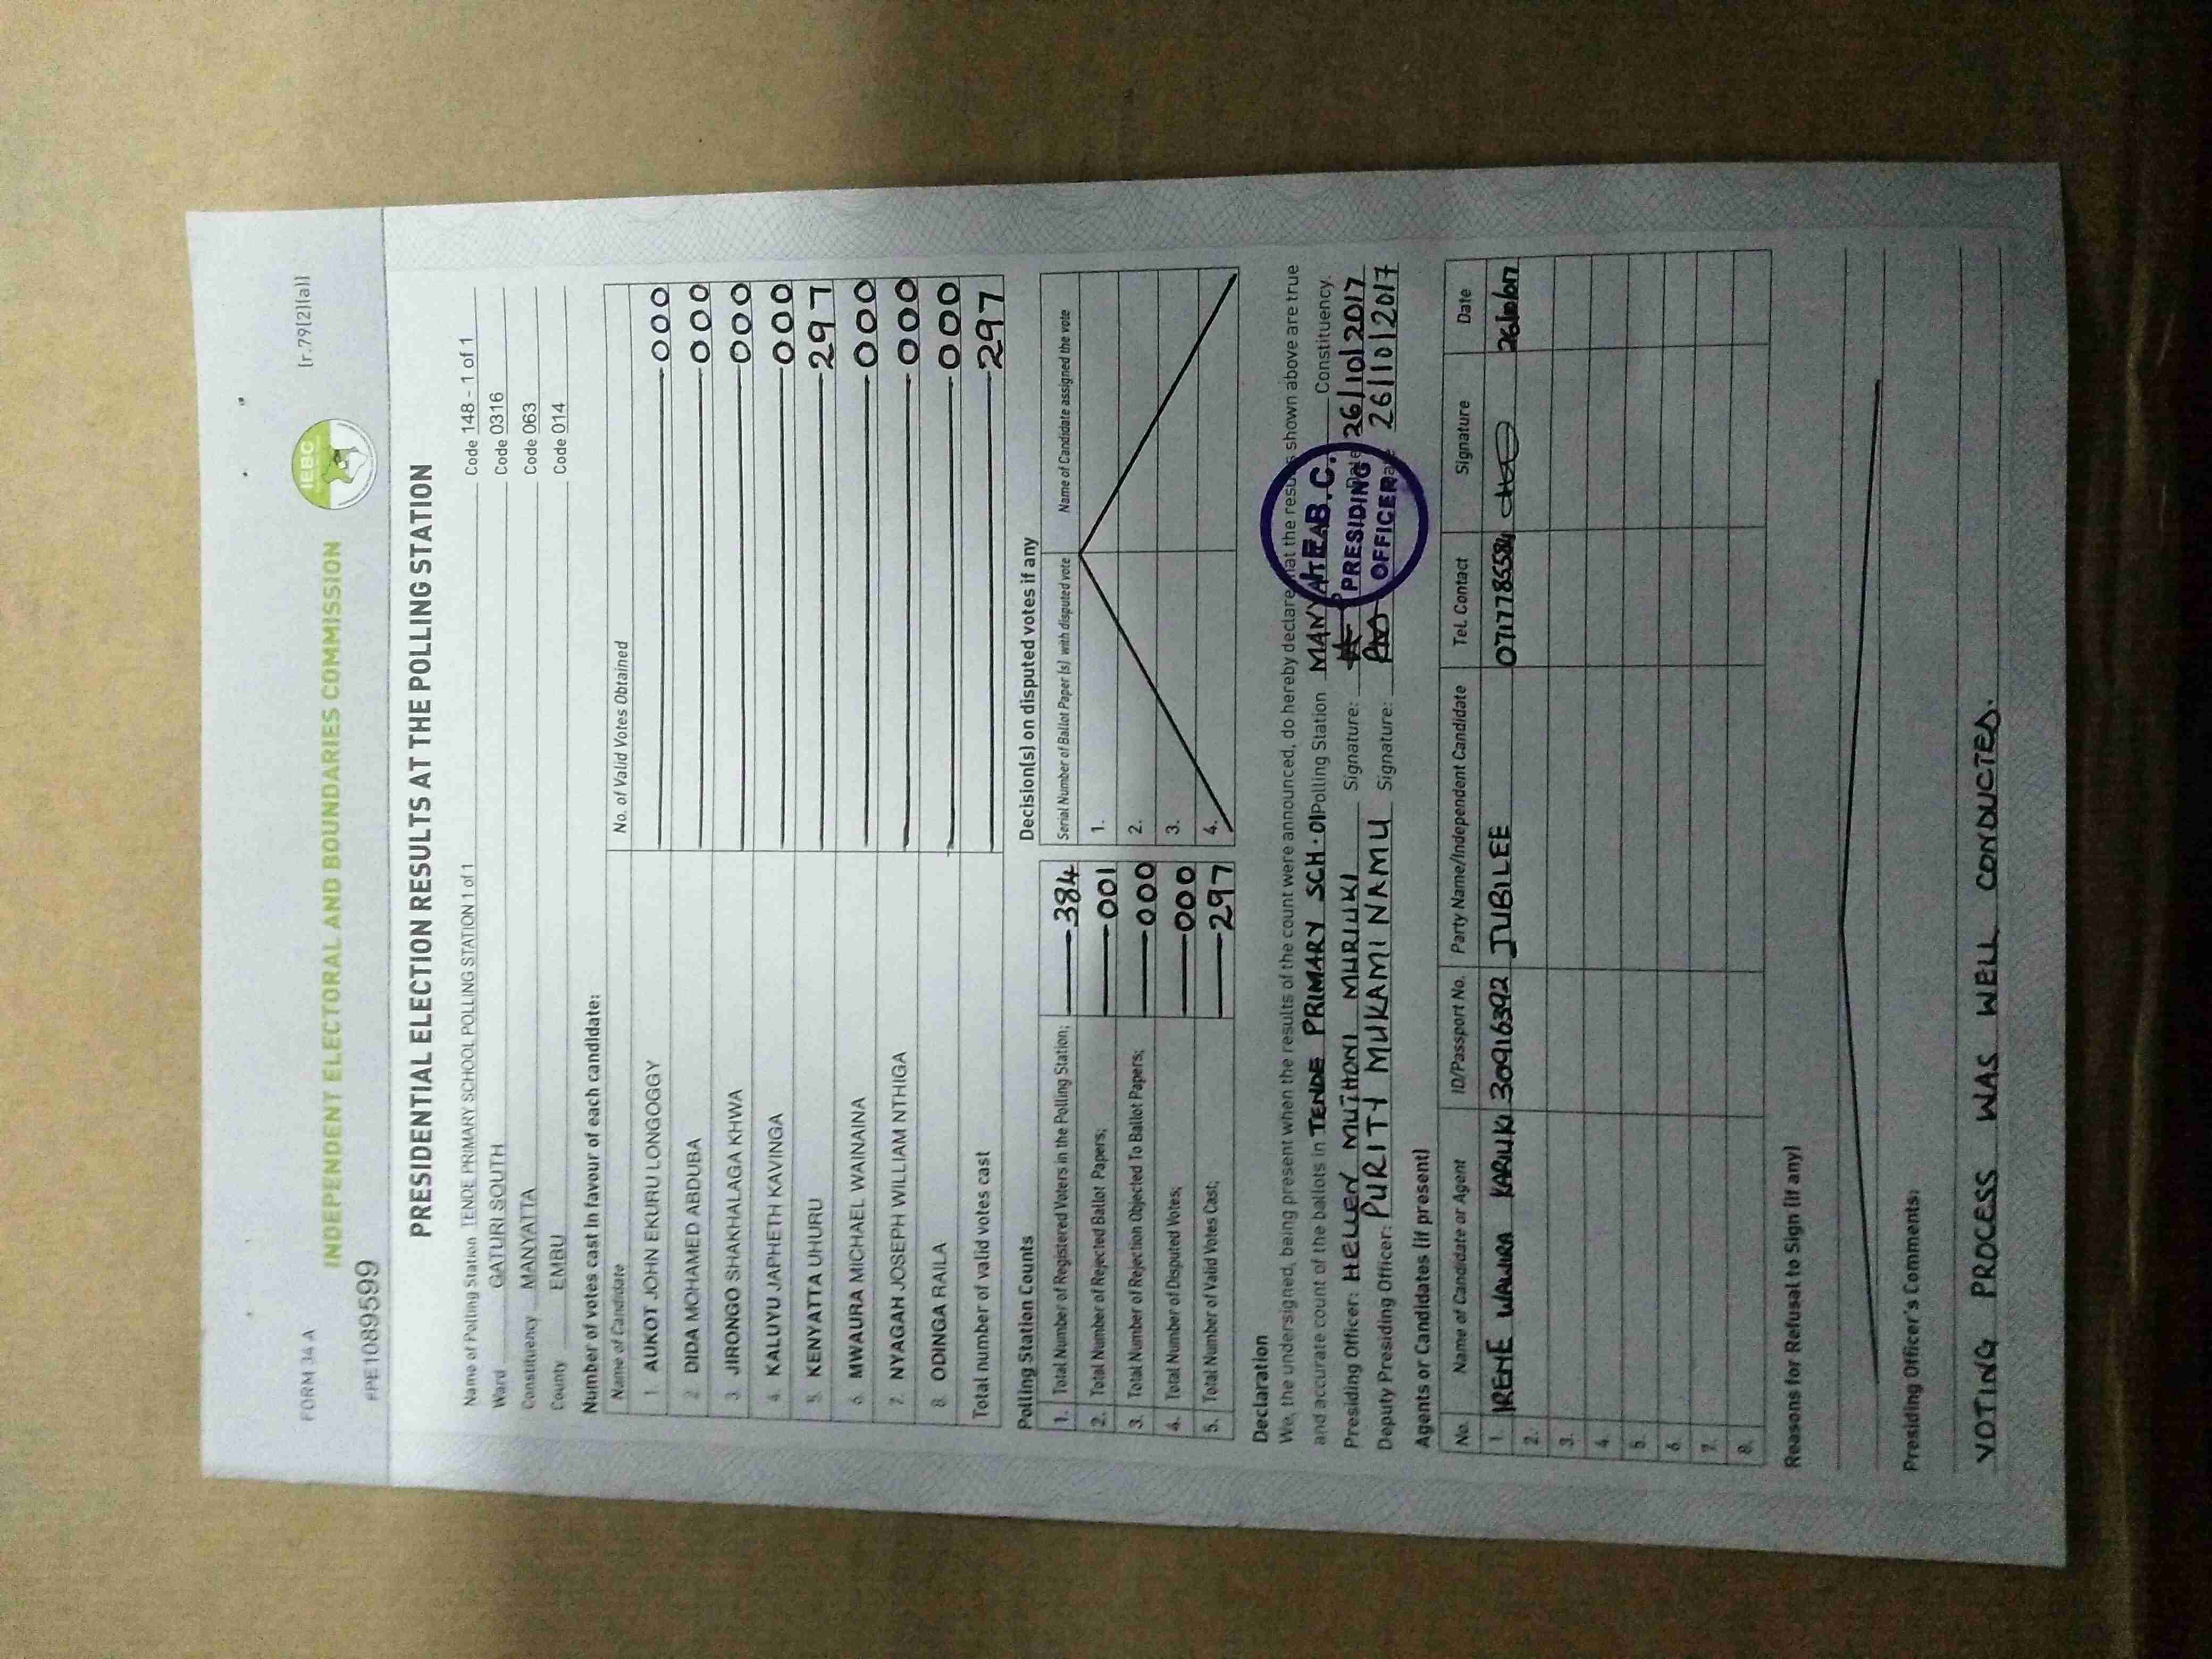 FORM 34 A
[r.79(2)(a)]
INDEPENDENT ELECTORAL AND BOUNDARIES COMMISSION
IEBC
PRESIDENTIAL ELECTION RESULTS AT THE POLLING STATION
Name of Polling Station TENDE PRIMARY SCHOOL POLLING STATION 1 of 1 Code 148 - 1 of 1
Ward GATURI SOUTH Code 0316
Constituency MANYATTA Code 063
County EMBU Code 014
Number of votes cast in favour of each candidate:
Name of Candidate No. of Valid Votes Obtained
1. AUKOT JOHN EKURU LONGOGGY 000
2. DIDA MOHAMED ABDUBA 000
3. JIRONGO SHAKHALAGA KHWA 000
4. KALUYU JAPHETH KAVINGA 000
5. KENYATTA UHURU 297
6. MWAURA MICHAEL WAINAINA 000
7. NYAGAH JOSEPH WILLIAM NTHIGA 000
8. ODINGA RAILA 000
Total number of valid votes cast 297
Polling Station Counts
1. Total Number of Registered Voters in the Polling Station; 384
2. Total Number of Rejected Ballot Papers; 001
3. Total Number of Rejection Objected To Ballot Papers; 000
4. Total Number of Disputed Votes; 000
5. Total Number of Valid Votes Cast; 297
Decision(s) on disputed votes if any
Serial Number of Ballot Paper (s) with disputed vote Name of Candidate assigned the vote
1.
2.
3.
4.
Declaration
We, the undersigned, being present when the results of the count were announced, do hereby declare that the results shown above are true
and accurate count of the ballots in TENDE PRIMARY SCH.01 Polling Station MANYATTA Constituency.
Presiding Officer: HELLEN MUTHONI MURIUKI Signature: Date 26/10/2017
Deputy Presiding Officer: PURITY MUKAMI NAMU Signature: Date 26/10/2017
PRESIDING
OFFICER
Agents or Candidates (if present)
No. Name of Candidate or Agent ID/Passport No. Party Name/Independent Candidate Tel. Contact Signature Date
1. IRENE WAWIRA KARIUKI 30916392 JUBILEE 26/10/017
2.
3.
4.
5.
6.
7.
8.
Reasons for Refusal to Sign (if any)
Presiding Officer's Comments:
VOTING PROCESS WAS WELL CONDUCTED.